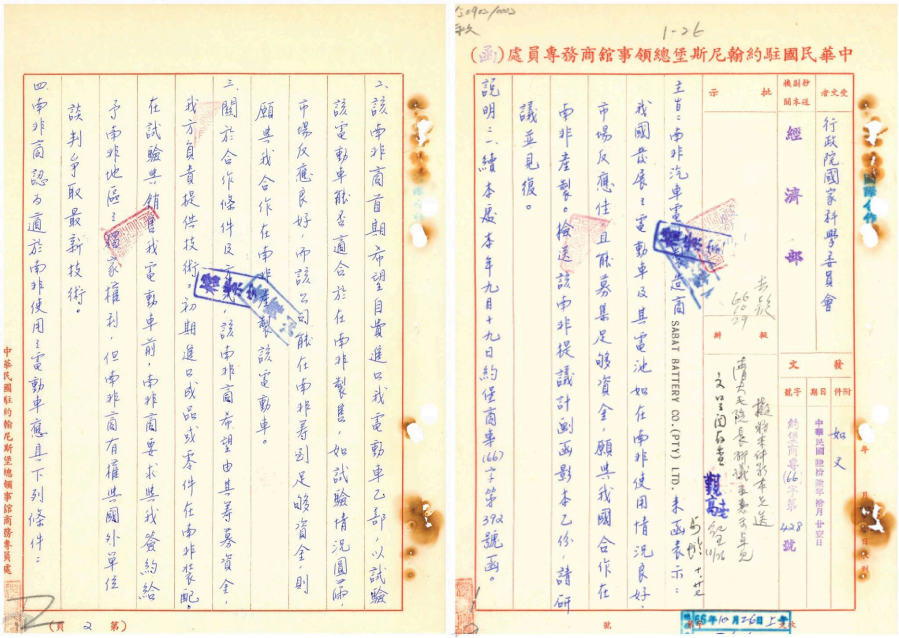 1-26
中華民國駐約翰尼斯堡總領事館商務專員處（函）
受文者
行政院國家科學委員會
抄副
送本
機關
經濟部
批示
擬辦
發文
附件
如文
日期
中華民國陸拾陸年拾月廿壹日
字號
約堡商專(66)字第428號
主旨：南非汽車電池製造商SABAT BATTERY CO.(PTY) LTD. 來函表示：
我國發展之電動車及其電池如在南非使用情況良好，
市場反應佳，且能募集足夠資金，願與我國合作在
南非產製。檢送該南非提議計劃函影本乙份，請研
議並見復。
說明：一、續本處本年九月十九日約堡商專(66)字第392號函。
66年10月26日上午
號
二、該南非商首期希望自費進口我電動車乙部，以試驗
該電動車能否適合於在南非製售，如試驗情況圓滿，
市場反應良好，而該公司能在南非籌到足夠資金，則
願與我合作在南非產製該電動車。
三、關於合作條件及方式，該南非商希望由其籌募資金，
我方負責提供技術。初期進口成品或零件在南非裝配。
在試驗與銷售我電動車前，南非商要求與我簽約給
予南非地區之獨家權利，但南非商有權與國外單位
談判爭取最新技術。
四、南非商認為適於南非使用之電動車應具下列條件：
中華民國駐約翰尼斯堡總領事館商務專員處
第 2 頁